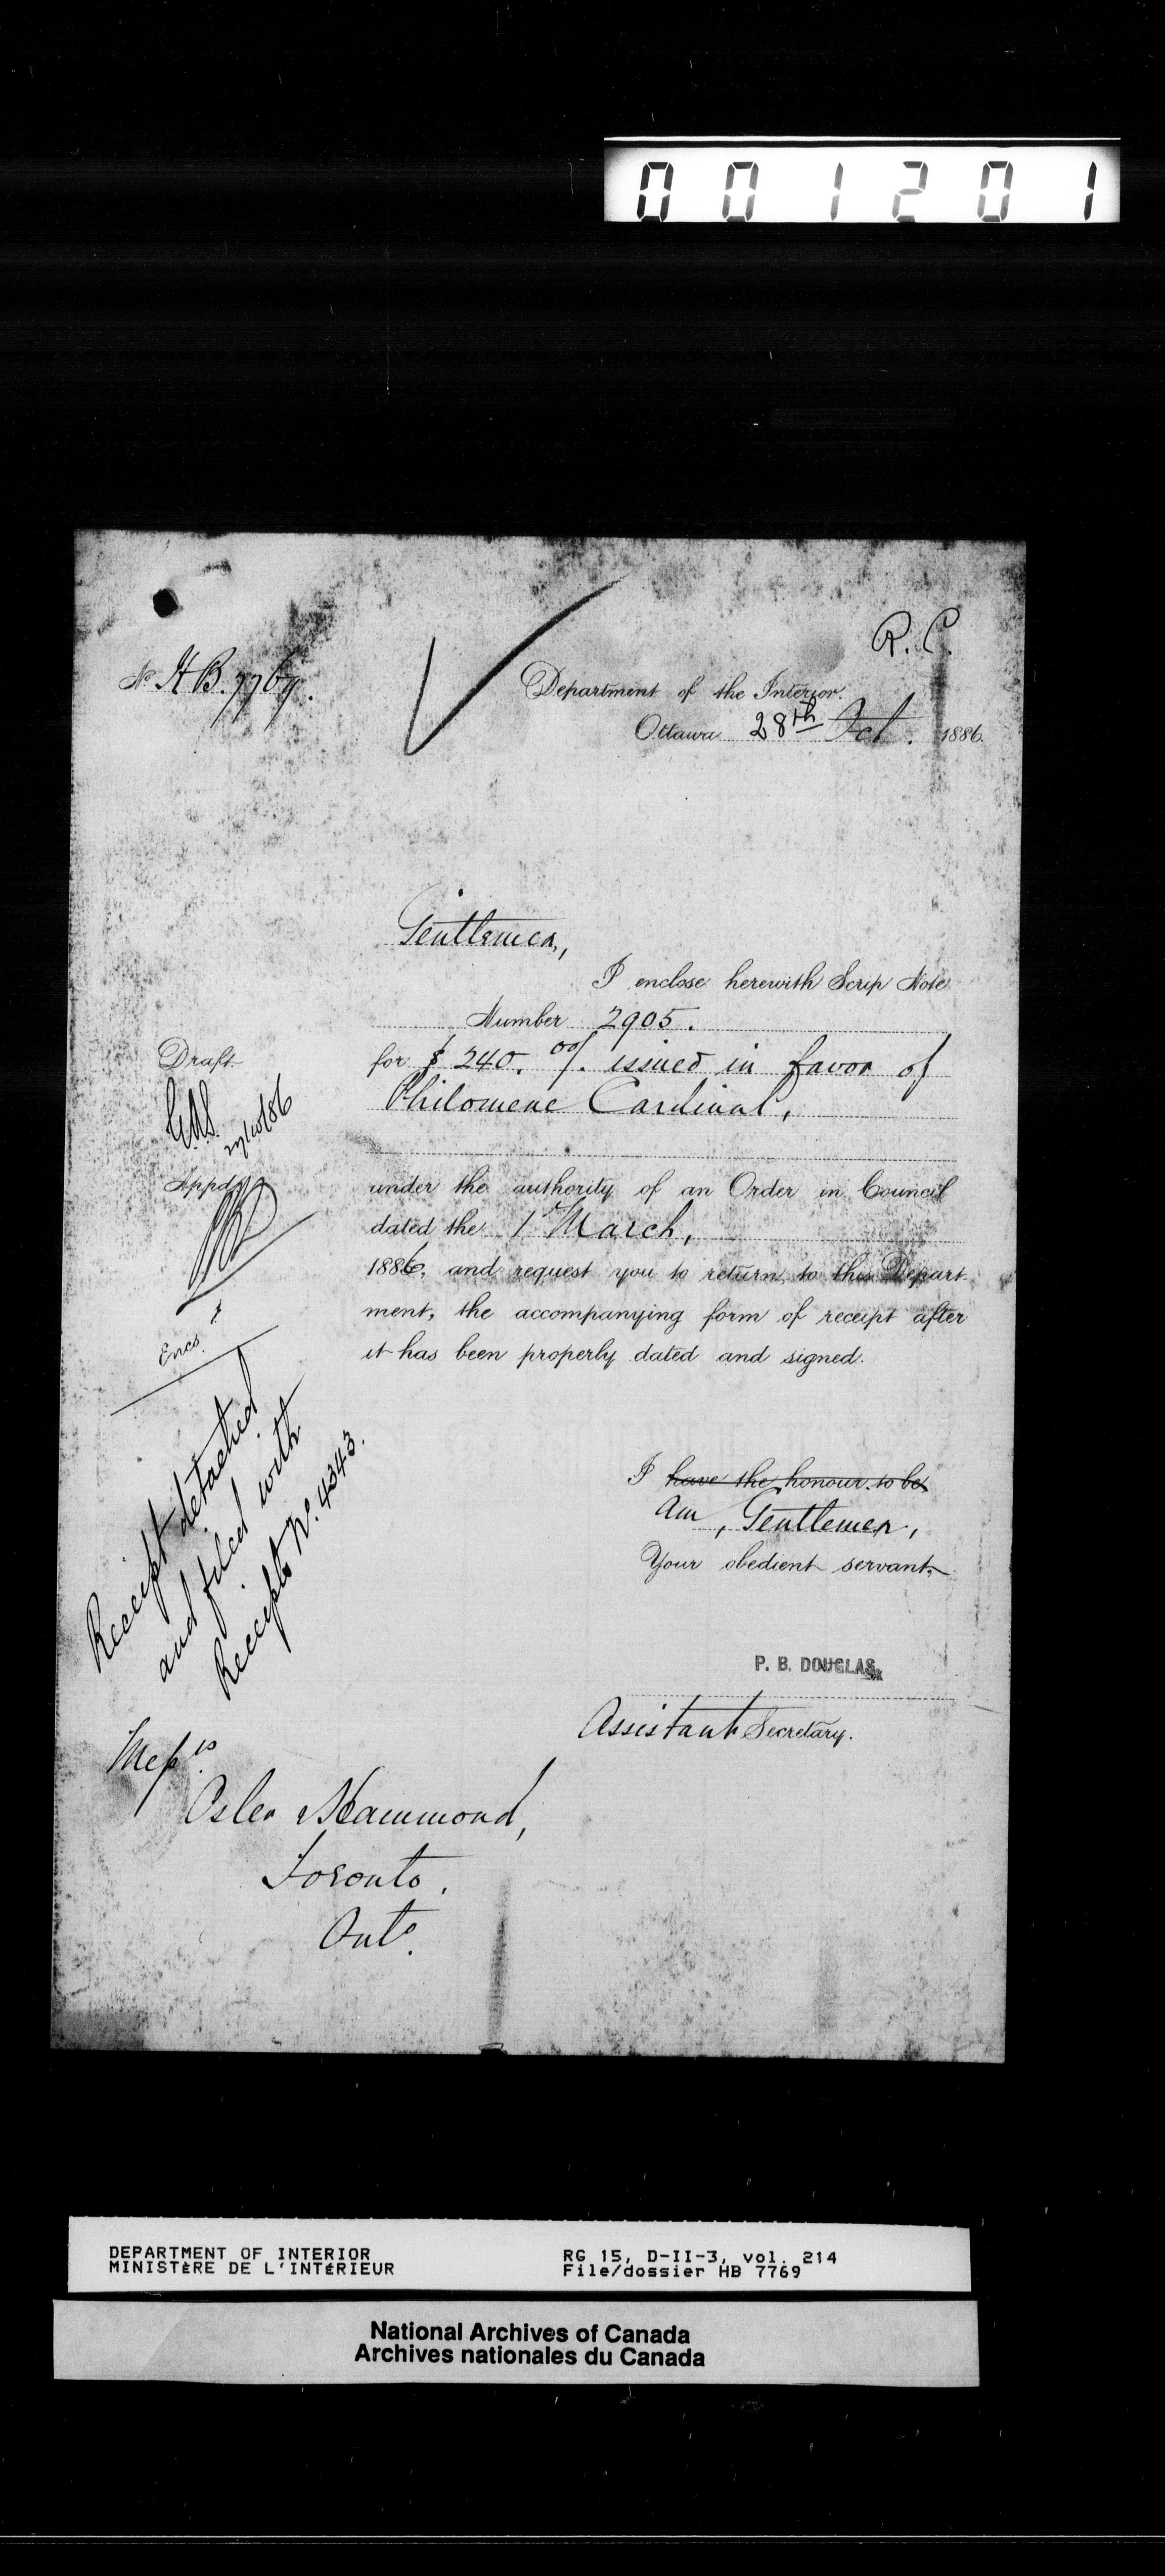 001201
R. C.
No H B. 7769.
Department of the Interior.
Ottawa 28th Oct. 1886.
Gentlemen,
I enclose herewith Scrip Note
Number 2905.
for $ 240. 00/. issued in favor of
Philomene Cardinal,
Draft
27/10/86
Appd
under the authority of an Order in Council
dated the 1st March,
1886, and request you to return to this Depart-
ment, the accompanying form of receipt after
it has been properly dated and signed.
Encs.
Receipt detached
and filed with
Receipts No. 4343.
I have the honour to be
am, Gentlemen,
Your obedient servant,
P. B. DOUGLAS,
Assistant Secretary.
Messrs.
Osler & Hammond,
Toronto.
Onto.
DEPARTMENT OF INTERIOR
MINISTÈRE DE L'INTÉRIEUR
RG 15, D-II-3, vol. 214
File/dossier HB 7769
National Archives of Canada
Archives nationales du Canada